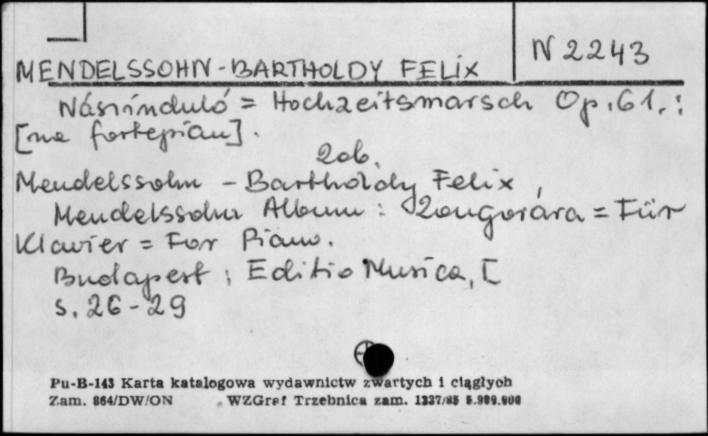 N 2243
MENDELSSOHN-BARTHOLDY FELIX
Násrinduló = Hochzeitsmarsch Op. 61. :
[na fortepian].
Zob.
Mendelssohn - Bartholdy Felix,
Mendelssohn Album : Zongorára = Für
Klavier = For Piano.
Budapest ; Editio Musica, [
s. 26-29
Pu-B-143 Karta katalogowa wydawnictw zwartych i ciągłych
Zam. 864/DW/ON WZGraf Trzebnica zam. 1337/85 5.999.900